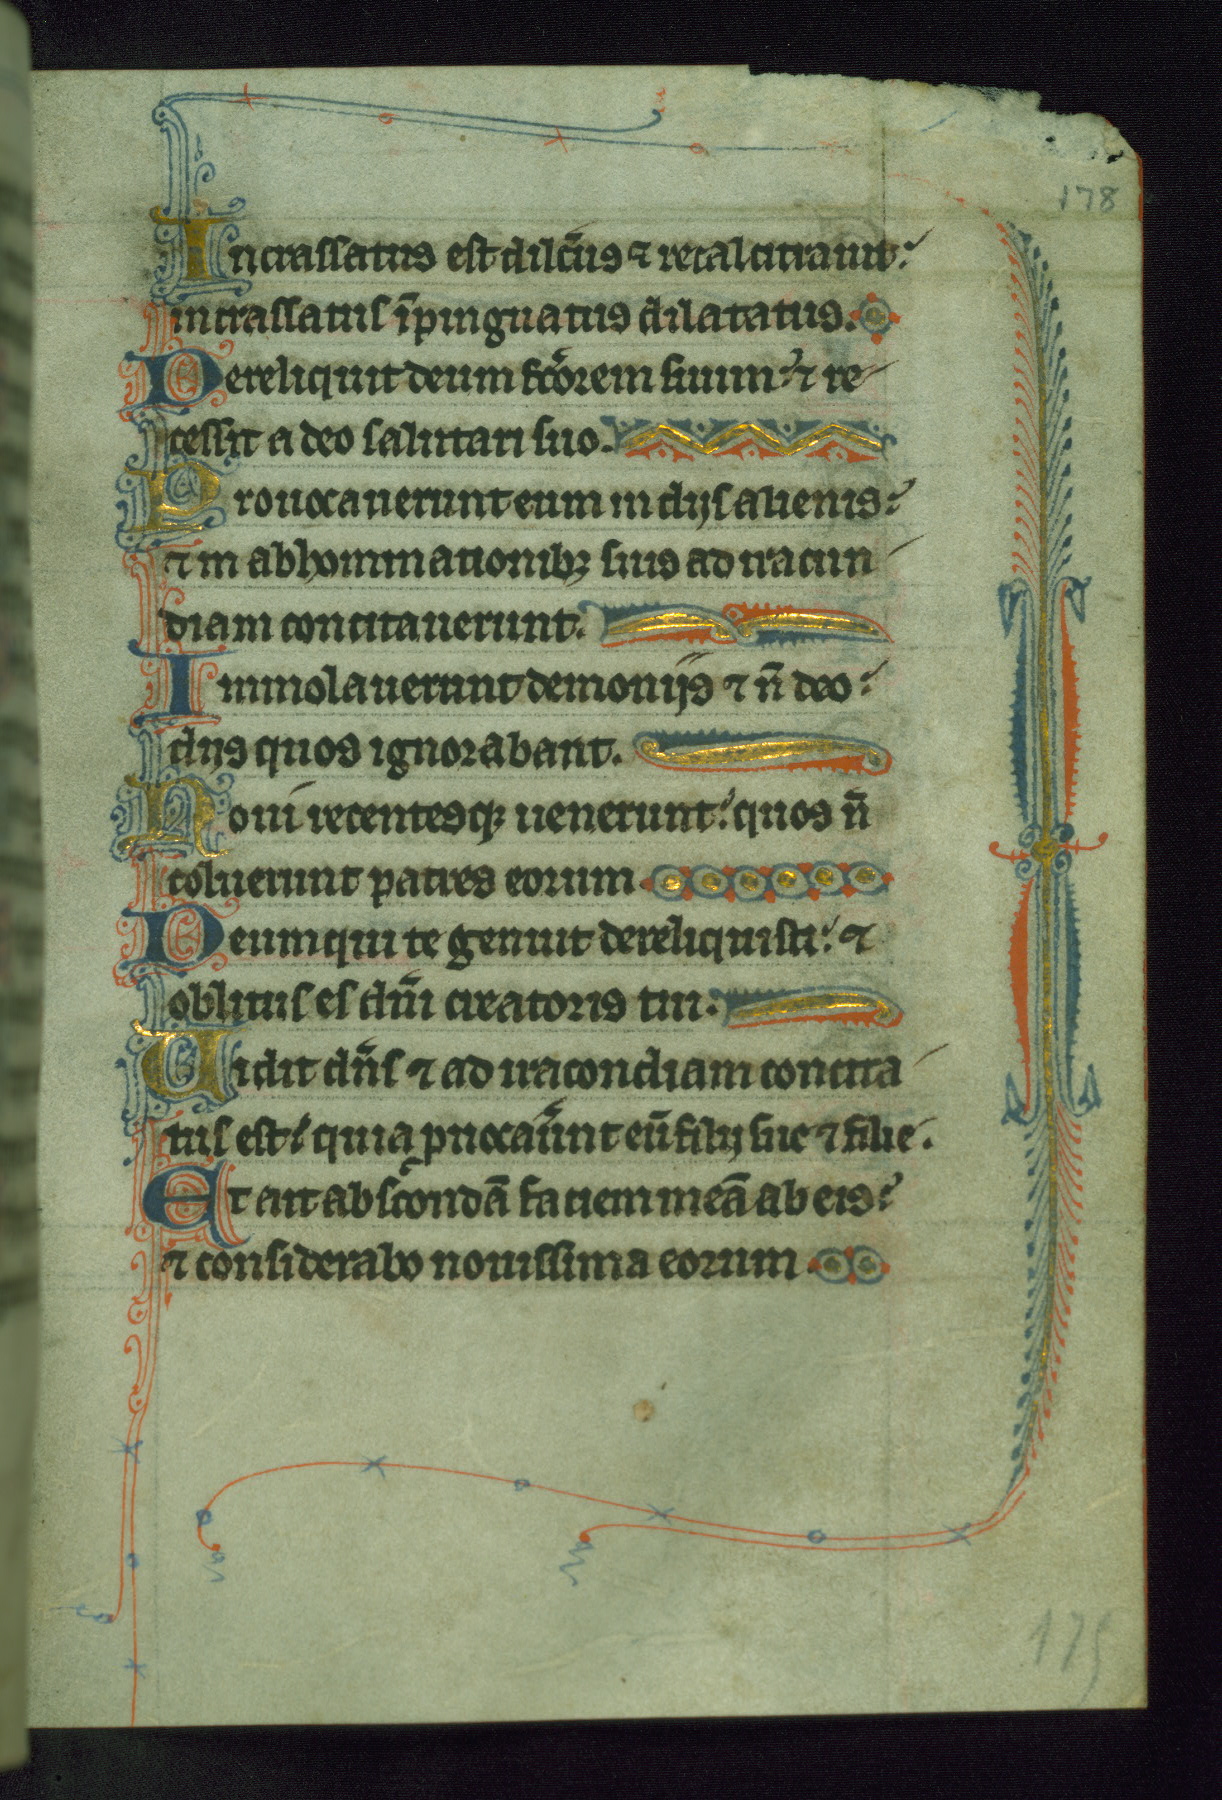 178
Incrassatus est dilc̄us ⁊ recalcitrauit:
incrassatus īpinguatus dilatatus.
Dereliquit deum fc̄orem suum: ⁊ re
cessit a deo salutari suo.
Prouocauerunt eum in diis alienis:
⁊ in abhominationibꝫ suis ad iracun
diam concitauerunt.
Immolauerunt demoniis ⁊ n̄ deo:
diis quos ignorabant.
Noui recentesqꝫ uenerunt: quos n̄
coluerunt patres eorum
Deum qui te genuit dereliquisti: ⁊
oblitus es dn̄i creatoris tui.
Uidit dn̄s ⁊ ad iracondiam concita
tus est: quia ꝓuocaūnt eū filii sui ⁊ filie.
Et ait abscondā faciem meā ab eis:
⁊ considerabo nouissima eorum
175